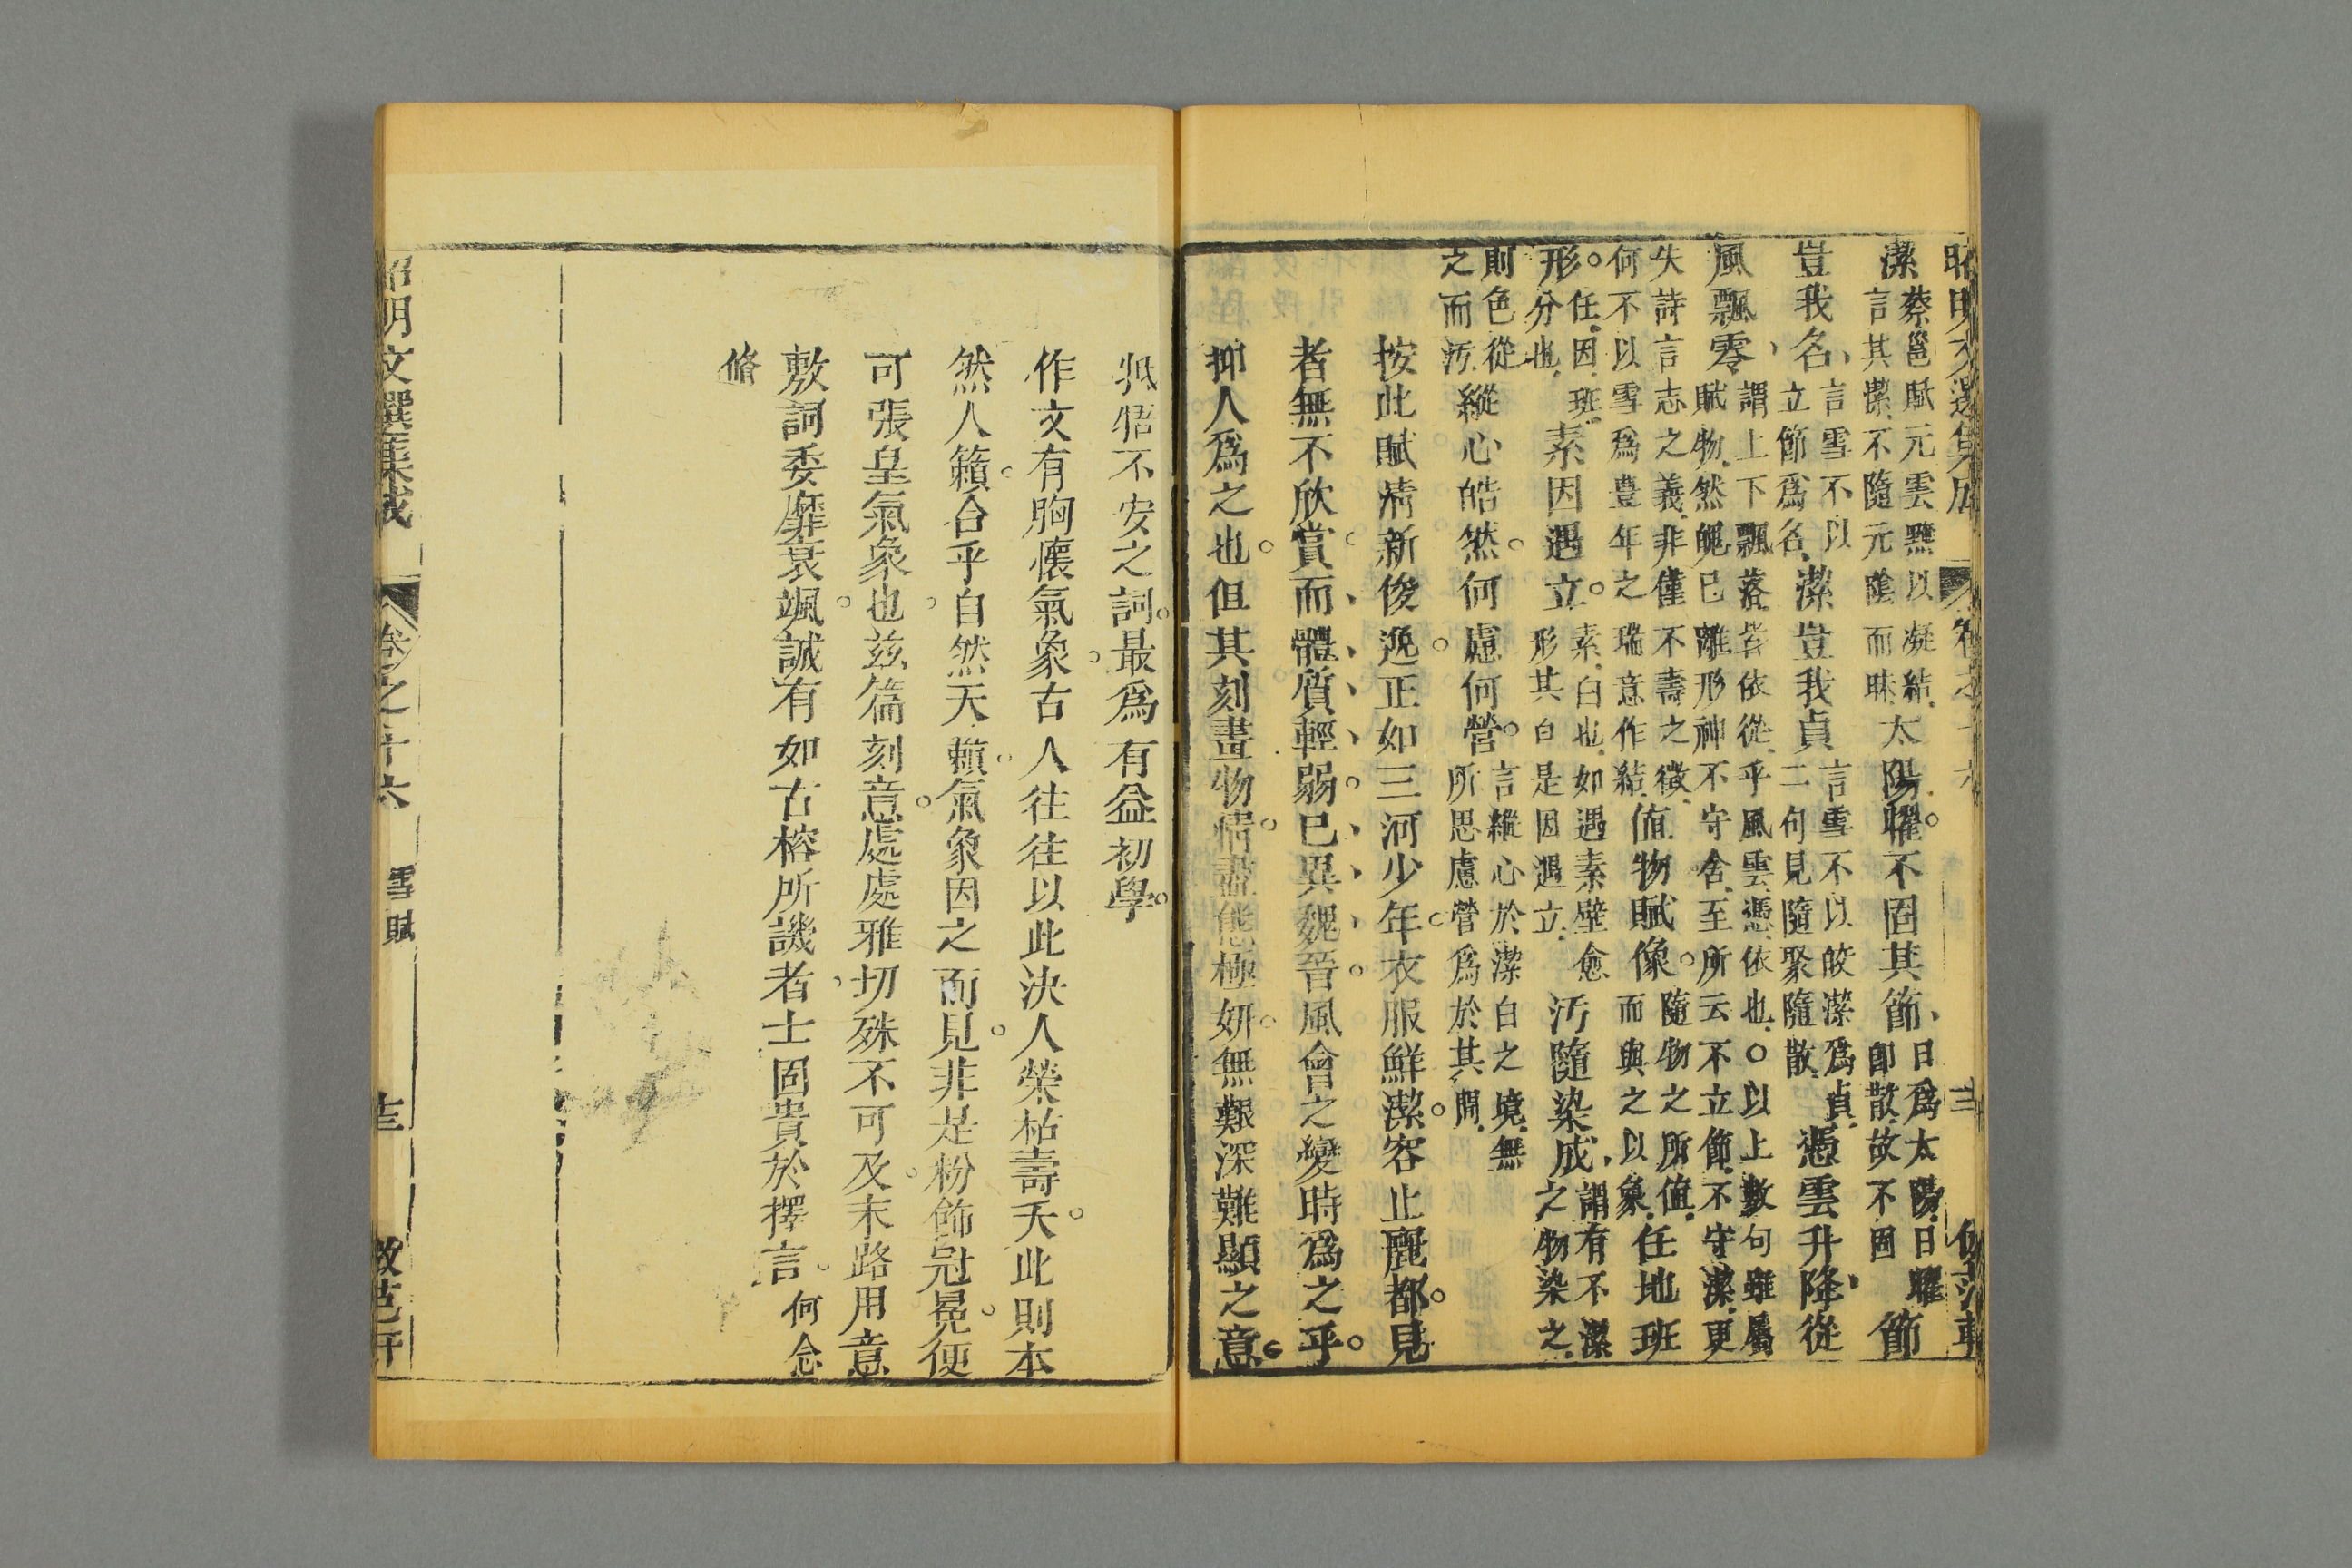 昭明文選集成 卷之十六 十三 傲范軒
潔蔡邕賦元雲黯以凝結言其潔不隨元陰而昧太陽曜。不固其節、日爲太陽日曜即散故不固節
豈我名、言雪不以立節爲名潔豈我貞言雪不以皎潔爲貞二句見隨聚隨散憑雲升降、從
風飄零、謂上下飄落皆依從乎風雲憑依也○以上數句雖屬賦物然魄已離形神不守舍至所云不立節不守潔更
失詩言志之義非僅不壽之徵何不以雪爲豊年之瑞意作結値物賦像。隨物之所値而與之以象任地班
形。任因班分也素因遇立。素白也如遇素壁愈形其白是因遇立汚隨染成、謂有不潔之物染之
則色從之而汚縱心皓然。何慮何營。言縱心於潔白之境無所思慮營爲於其間
按此賦淸新俊逸。正如三河少年。衣服鮮潔。容止麗都。見
者無不欣賞。而體質輕弱。已異魏晉。風會之變時爲之乎。
抑人爲之也。但其刻畫物情。盡態極妍。無艱深難顯之意。
牴牾不安之詞。最爲有益初學。
作文有胸懷氣象。古人往往以此決人榮枯壽夭。此則本
然人籟。合乎自然天籟。氣象因之而見。非是粉飾冠冕。便
可張皇氣象也。兹篇刻意。處處雅切殊不可及。末路用意
敷詞委靡衰颯。誠有如古榕所譏者、士固貴於擇言。何念
脩
昭明文選集成 卷之十六 雪賦 十三 傲范軒